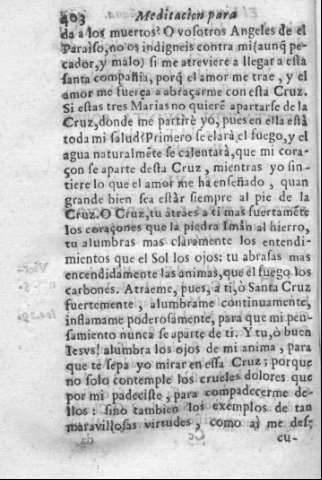 403 Meditacion para
da a los muertos? O vosotros Angeles de el
Paraiso, no os indigneis contra mi (aunq̃ pe-
cador, y malo) si me atreviere a llegar a esta
santa compañia, porq̃ el amor me trae, y el
amor me fuerça a abraçarme con esta Cruz.
Si estas tres Marias no quierẽ apartarse de la
Cruz, donde me partirè yo, pues en ella està
toda mi salud? Primero se elarà el fuego, y el
agua naturalmẽte se calentarà, que mi cora-
çon se aparte desta Cruz, mientras yo sin-
tiere lo que el amor me ha enseñado, quan
grande bien sea estàr siempre al pie de la
Cruz. O Cruz, tu atraes a ti mas fuertamẽte
los coraçones que la piedra Imàn al hierro,
tu alumbras mas claramente los entendi-
mientos que el Sol los ojos: tu abrasas mas
encendidamente las animas, que el fuego los
carbones. Atraeme, pues, a ti, ò Santa Cruz
fuertemente, alumbrame continuamente,
inflamame poderosamente, para que mi pen-
samiento nunca se aparte de ti. Y tu, ò buen
Iesvs! alumbra los ojos de mi anima, para
que te sepa yo mirar en essa Cruz; porque
no solo contemple los crueles dolores que
por mi padeciste, para compadecerme de-
llos: sino tambien los exemplos de tan
maravillosas virtudes, como ai me des-
cu-